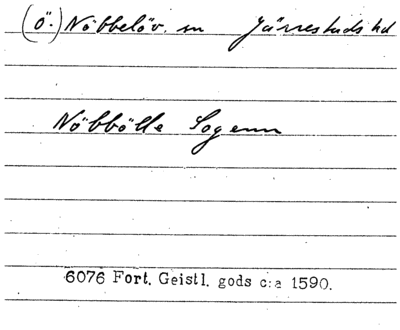 (Ö.) Nöbbelöv. sn Järrestads hd
Nöbbölle Sogenn
6076 Fort. Geistl. gods c:a 1590.